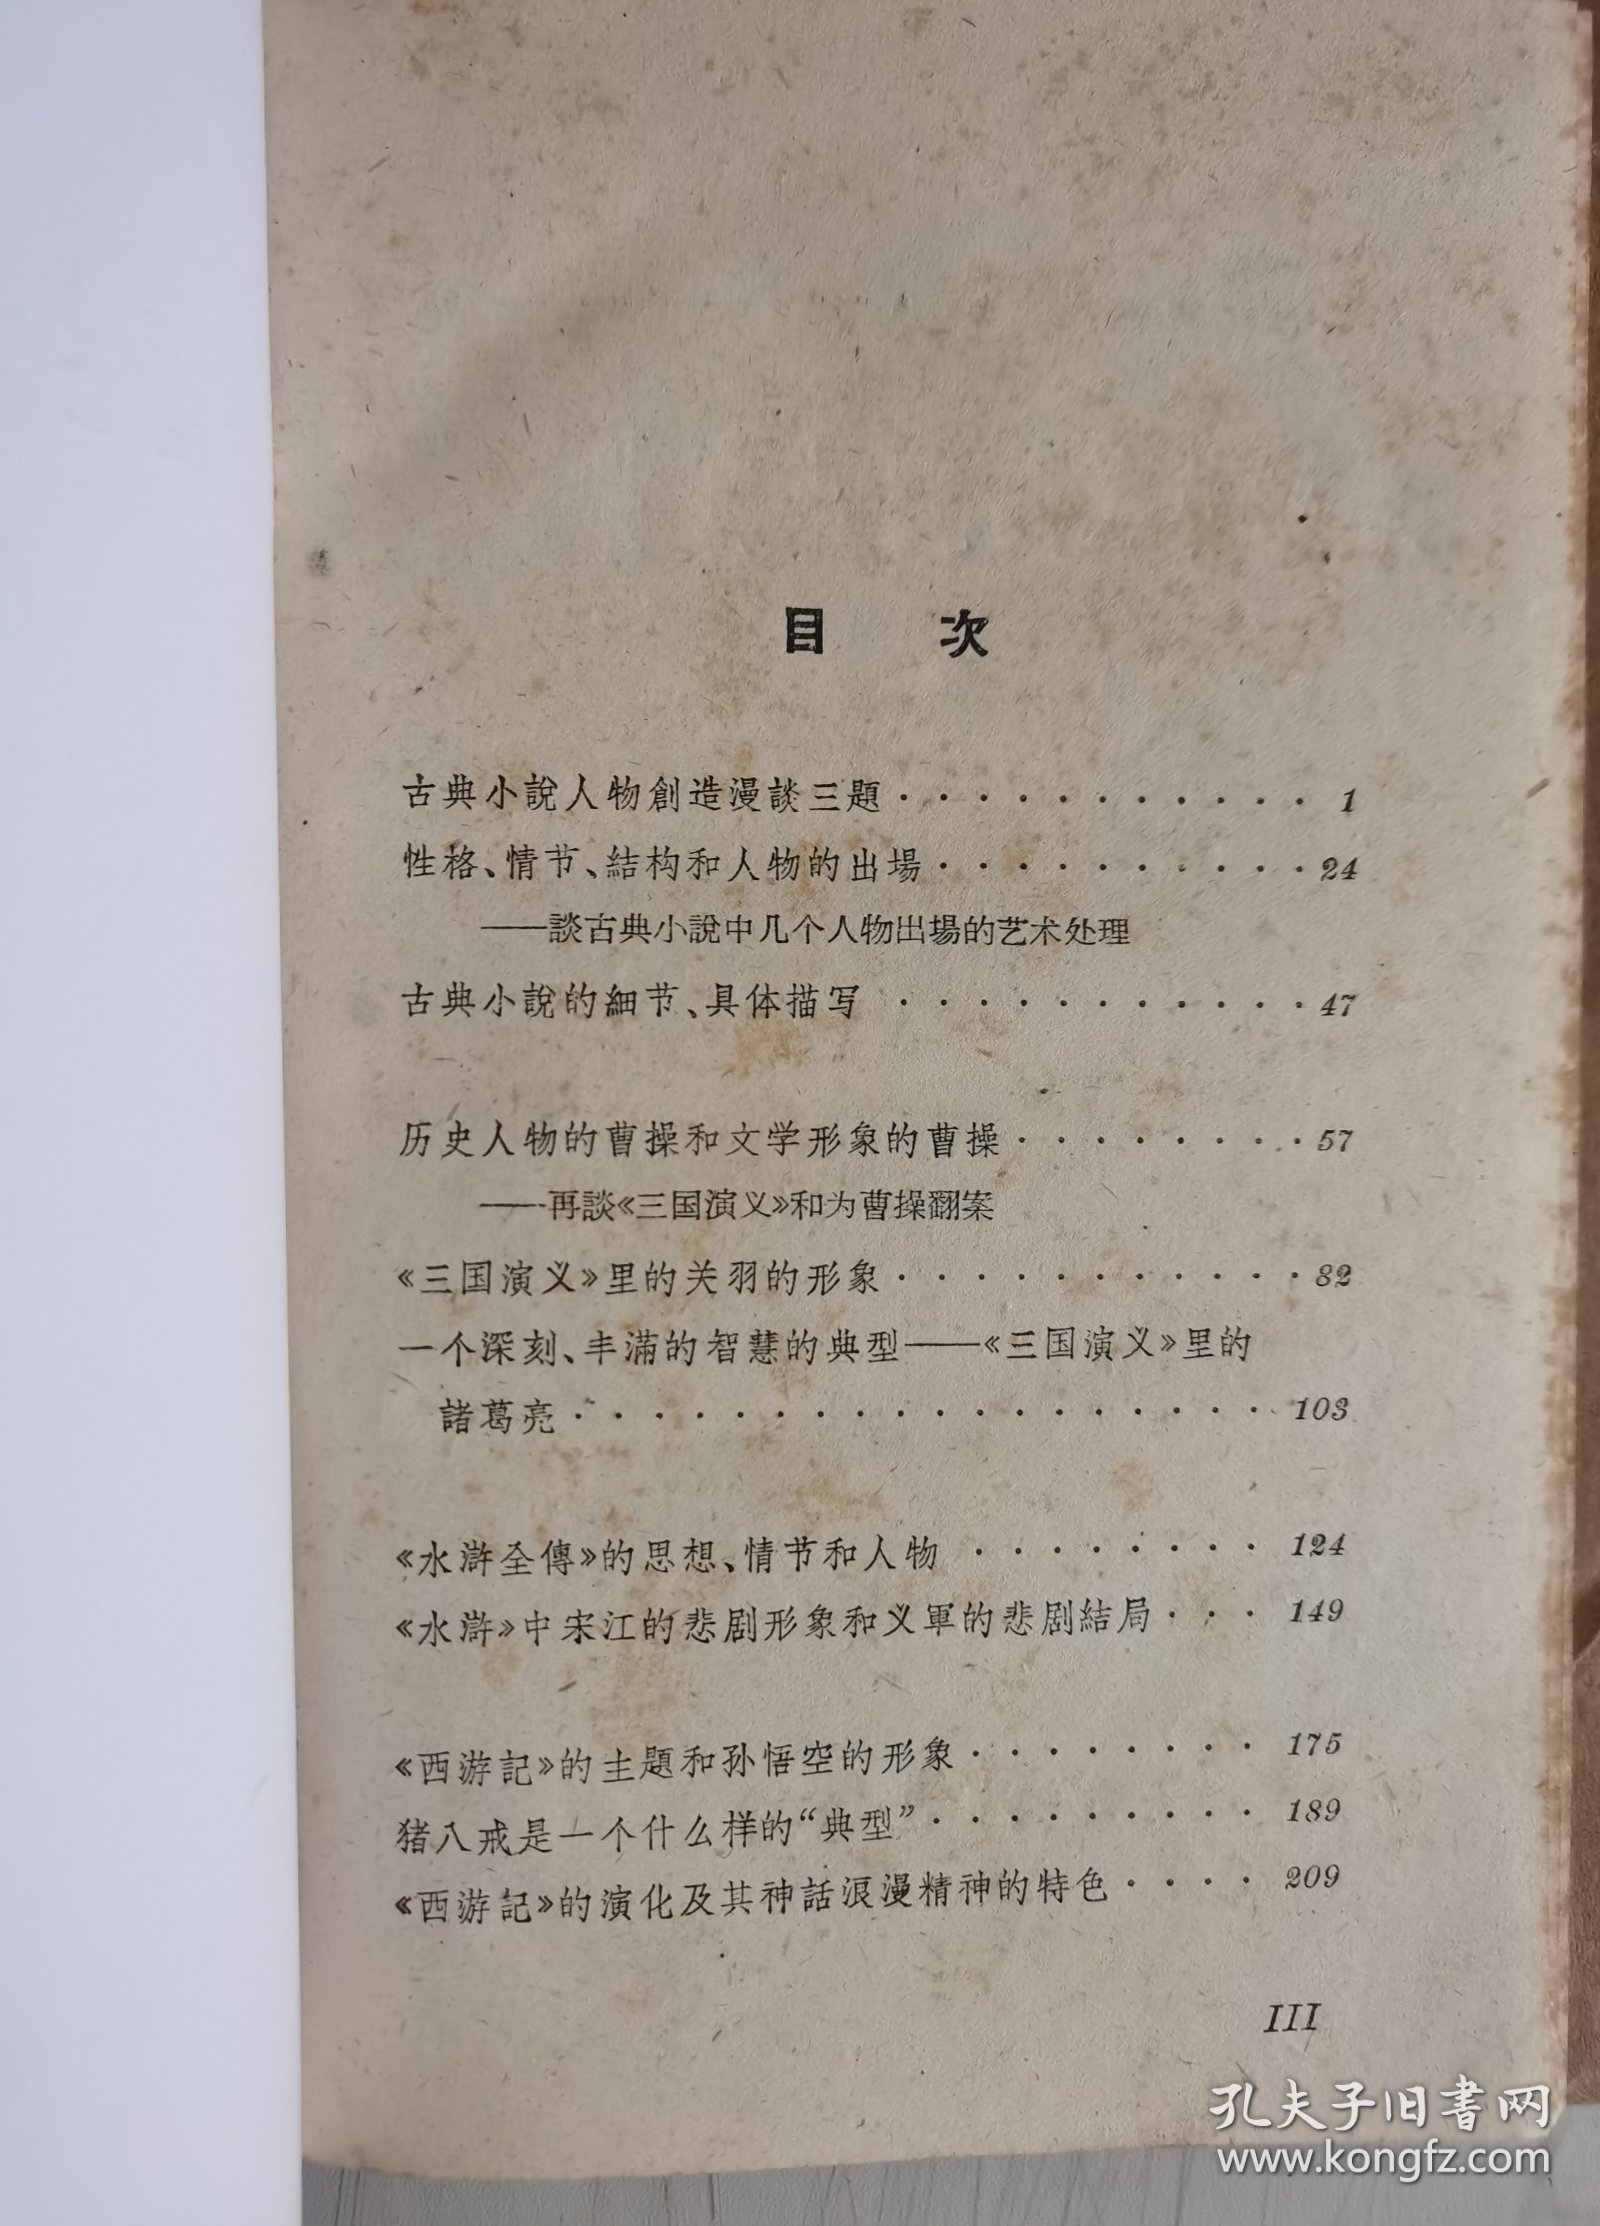 目 次
古典小說人物創造漫談三題 · · · · · · · · · · · 1
性格、情节、結构和人物的出場 · · · · · · · · · · 24
——談古典小說中几个人物出場的艺术处理
古典小說的細节、具体描写 · · · · · · · · · · · 47
历史人物的曹操和文学形象的曹操 · · · · · · · · 57
——再談《三国演义》和为曹操翻案
《三国演义》里的关羽的形象 · · · · · · · · · · · 82
一个深刻、丰滿的智慧的典型——《三国演义》里的
諸葛亮 · · · · · · · · · · · · · · · · · · 103
《水滸全傳》的思想、情节和人物 · · · · · · · · 124
《水滸》中宋江的悲剧形象和义軍的悲剧結局 · · · 149
《西游記》的主題和孙悟空的形象 · · · · · · · · 175
猪八戒是一个什么样的“典型” · · · · · · · · · 189
《西游記》的演化及其神話浪漫精神的特色 · · · · 209
III
孔夫子旧書网
www.kongfz.com